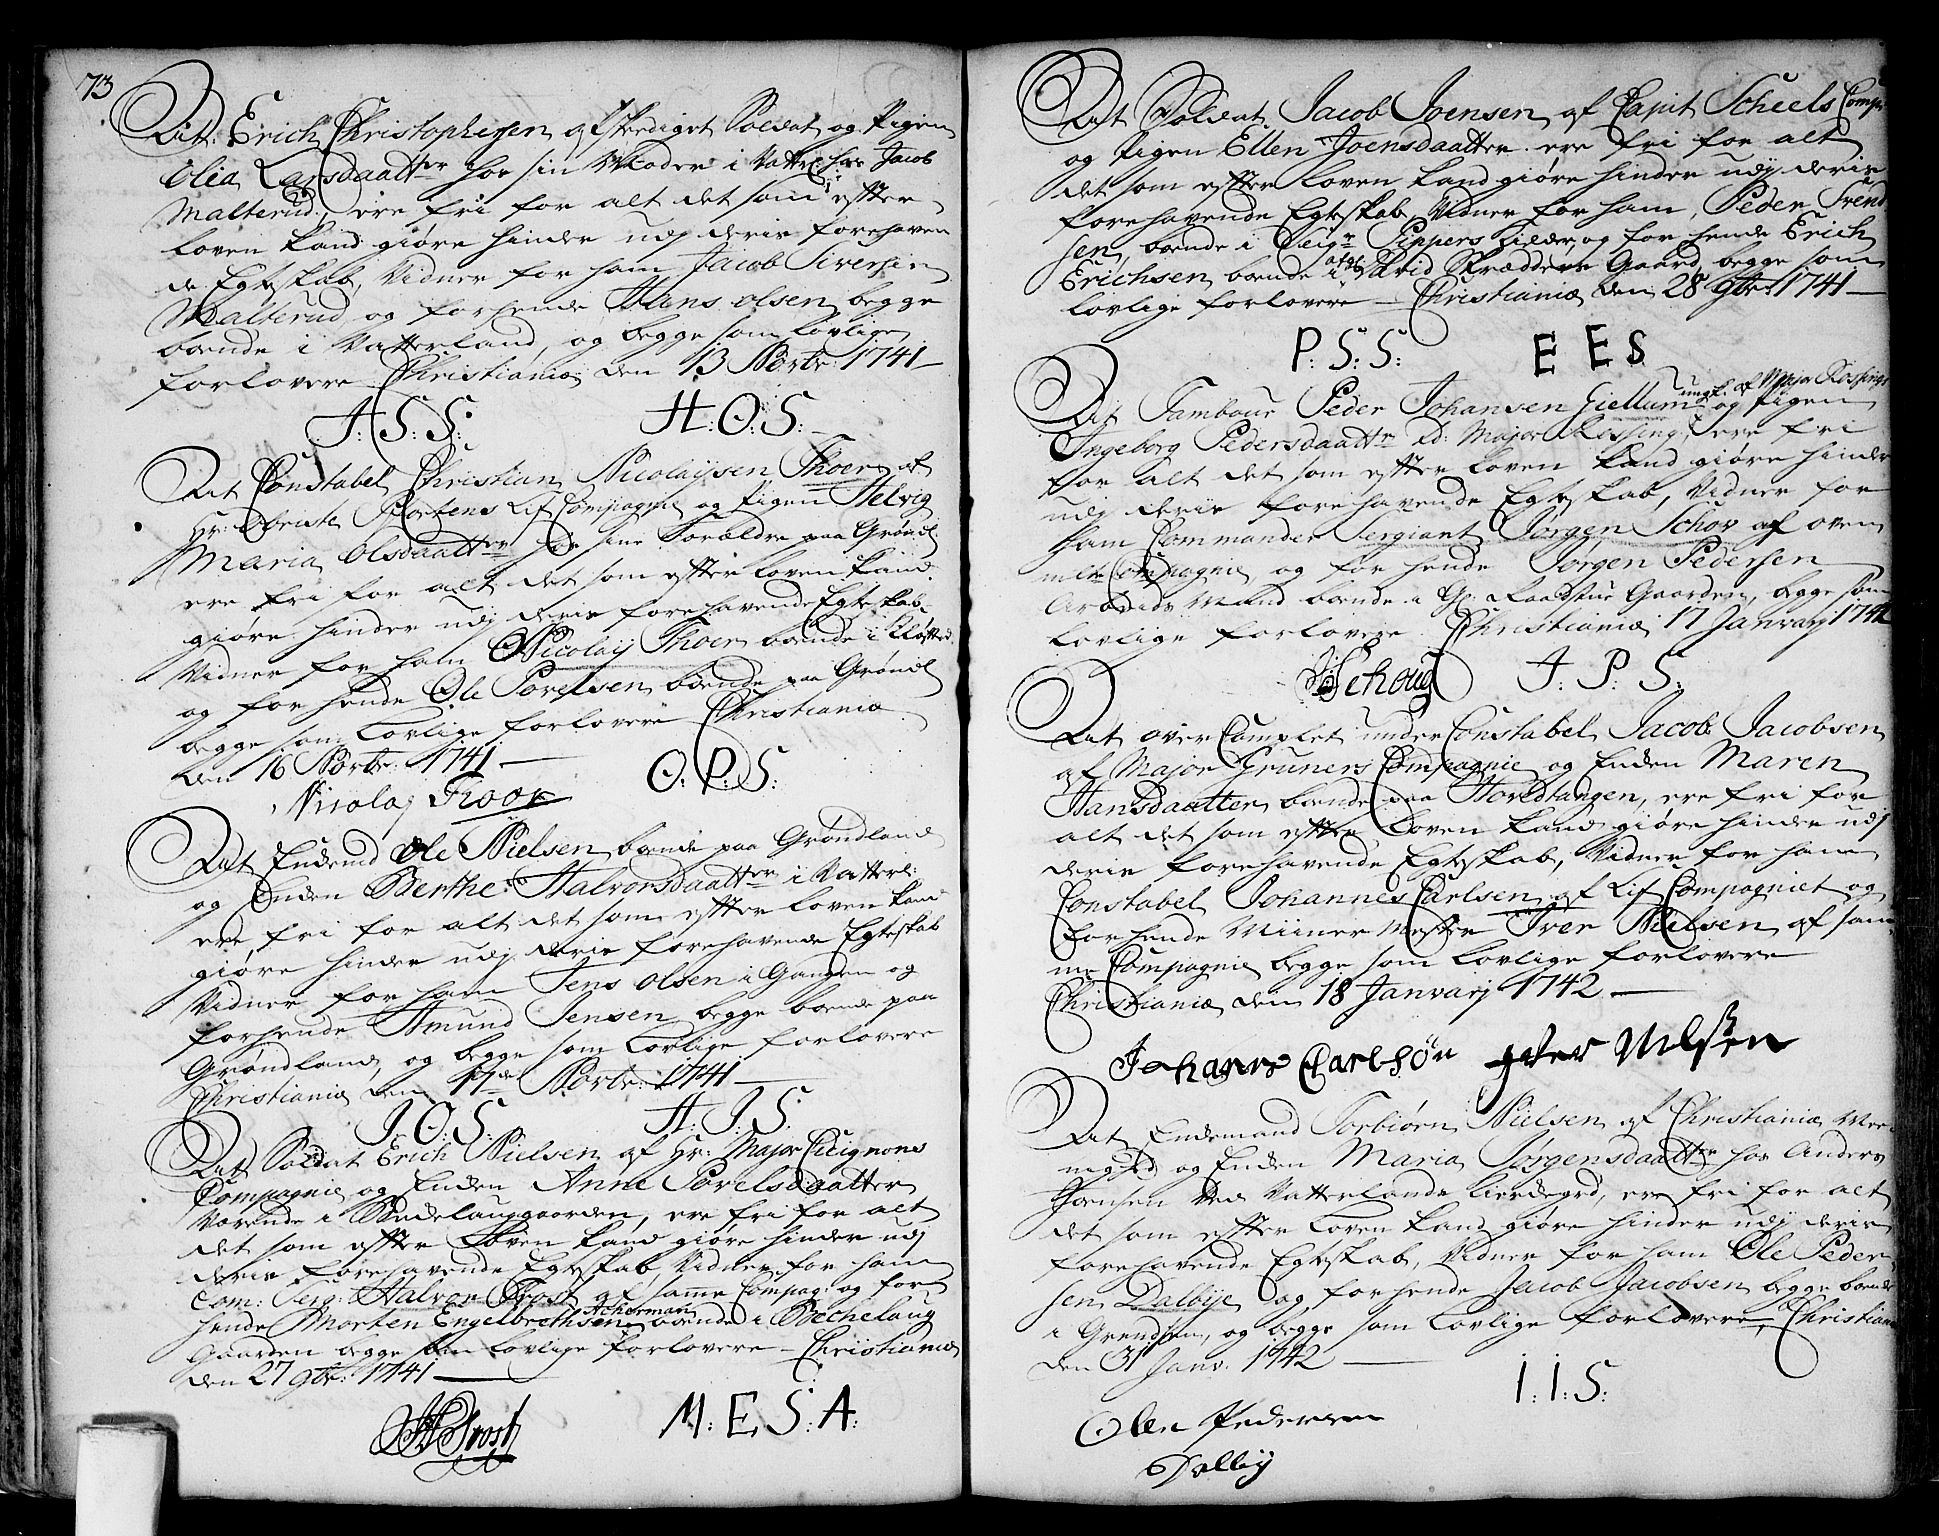 73
Dat Erich Christophersen afskediget Soldat og Pigen
Olia Larsdaatter hos sin Moder i Vatterl: hos Jacob
Malterud, ere fri for alt det som efter
loven kand giøre hinder udj deris forehaven
de Egteskab, Vidner for ham Jacob Siversen
Malterud, og for hende Hans Olsen begge
boende i Vatterland, og begge som lovlige
forlovere Christiania den 13 Novbr: 1741
J: S: S: H: O: S:
Dat Constabel Christian Nicolaijsen Thoer af
Hr: Obriste Mortens Lif Compagnie og Pigen Helvig
Maria Olsdaatter hos sine Forældre paa Grønl:
ere fri for alt det som efter loven kand
giøre hinder udj deris forehavende Egteskab,
Vidner for ham Nicolaij Thoer boende i
og for hende Ole Povelsen boende paa Grønl:
begge som lovlige forlovere Christiania
den 16 Novbr: 1741
Nicolaj Troor O: P: S:
Dat Enckemd Ole Nielsen boende paa Grønland
og Encken Berthe Halvorsdaatter i Vatterl:
ere fri for alt det som efter loven kand
giøre hinder udj deris forehavende Egteskab
Vidner for ham Jens Olsen i Gangen og
for hende Amund Jensen begge boende paa
Grønland, og begge som lovlige forlovere
Christiania den 17de Novbr: 1741
J: O: S: A: J: S:
Dat Soldat Erich Nielsen af Hr: Major Cicignons
Compagnie og Encken Anne Povelsdaatter
Værende i Beckelauggaarden, ere fri for alt
det som efter Loven kand giøre hinder udj
deris forehavende Egteskab Vidner for ham
Com: Serg: Halvor Frost af samme Compag: og for
hende Morten Engelbrethsen Ackerman boende i Bechelaug
Gaarden begge som lovlige forlovere Christiania
den 27 9br: 1741
H Frost M: E: S: A:
Dat Soldat Jacob Joensen af Capit Scheels Comp:
og Pigen Ellen Joensdaatter ere fri for alt
det som efter loven kand giøre hinder udj deris
forehavende Egteskab, Vidner for ham, Peder Svend
sen boende i Seigr Pippers gilder, og for hende Erich
Erichsen boende i afg: Arvid Skrædders Gaard, begge som
lovlige forlovere Christiania den 28 9br: 1741
P: S: S: E E S
Dat Tambour Peder Johansen Giellum ungk. af Major Rossings og Pigen
Ingeborg Pedersdaatter ibd: Major Rossing, ere fri
for alt det som efter loven kand giøre hinder
udj deris forehavende Egteskab, Vidner for
ham Commander Sergiant Jørgen Schov af oven
mlte Compagnie, og for hende Jørgen Pedersen
Arbeids Mand boende i Gl: Raadstue Gaarden, begge som
lovlige forlovere Christiania 17 Januarj 1742
Schoug J: P: S:
Dat over Complet under Constabel Jacob Jacobsen
af Major Gruners Compagnie og Encken Maren
Hansdaatter boende paa Hovedtangen, ere fri for
alt det som efter Loven kand giøre hinder udj
deris forehavende Egteskab, Vidner for ham
Constabel Johannes Carlsen af Lif Compagniet og
for hende Miiner Mester Iver Nielsen af sam
me Compagnie begge som lovlige forlovere
Christiania den 18 Januarj 1742
Johanes Carlsøn Iver Nilsen
Dat Enckemand Torbiørn Nielsen af Christiania Me
nighed og Encken Maria Jørgensdaatter hos Anders
Joensen ved Vatterlands, ere fri for alt
det som efter Loven kand giøre hinder udj deris
forehavende Egteskab, Vidner for ham Ole Peder
sen Dalbye og for hende Jacob Jacobsen begge boende
i Grendsen, og begge som lovlige forlovere, Christiania
den 31 Janv: 1742
I: I: S:
Olen Pedersen
Dalbij